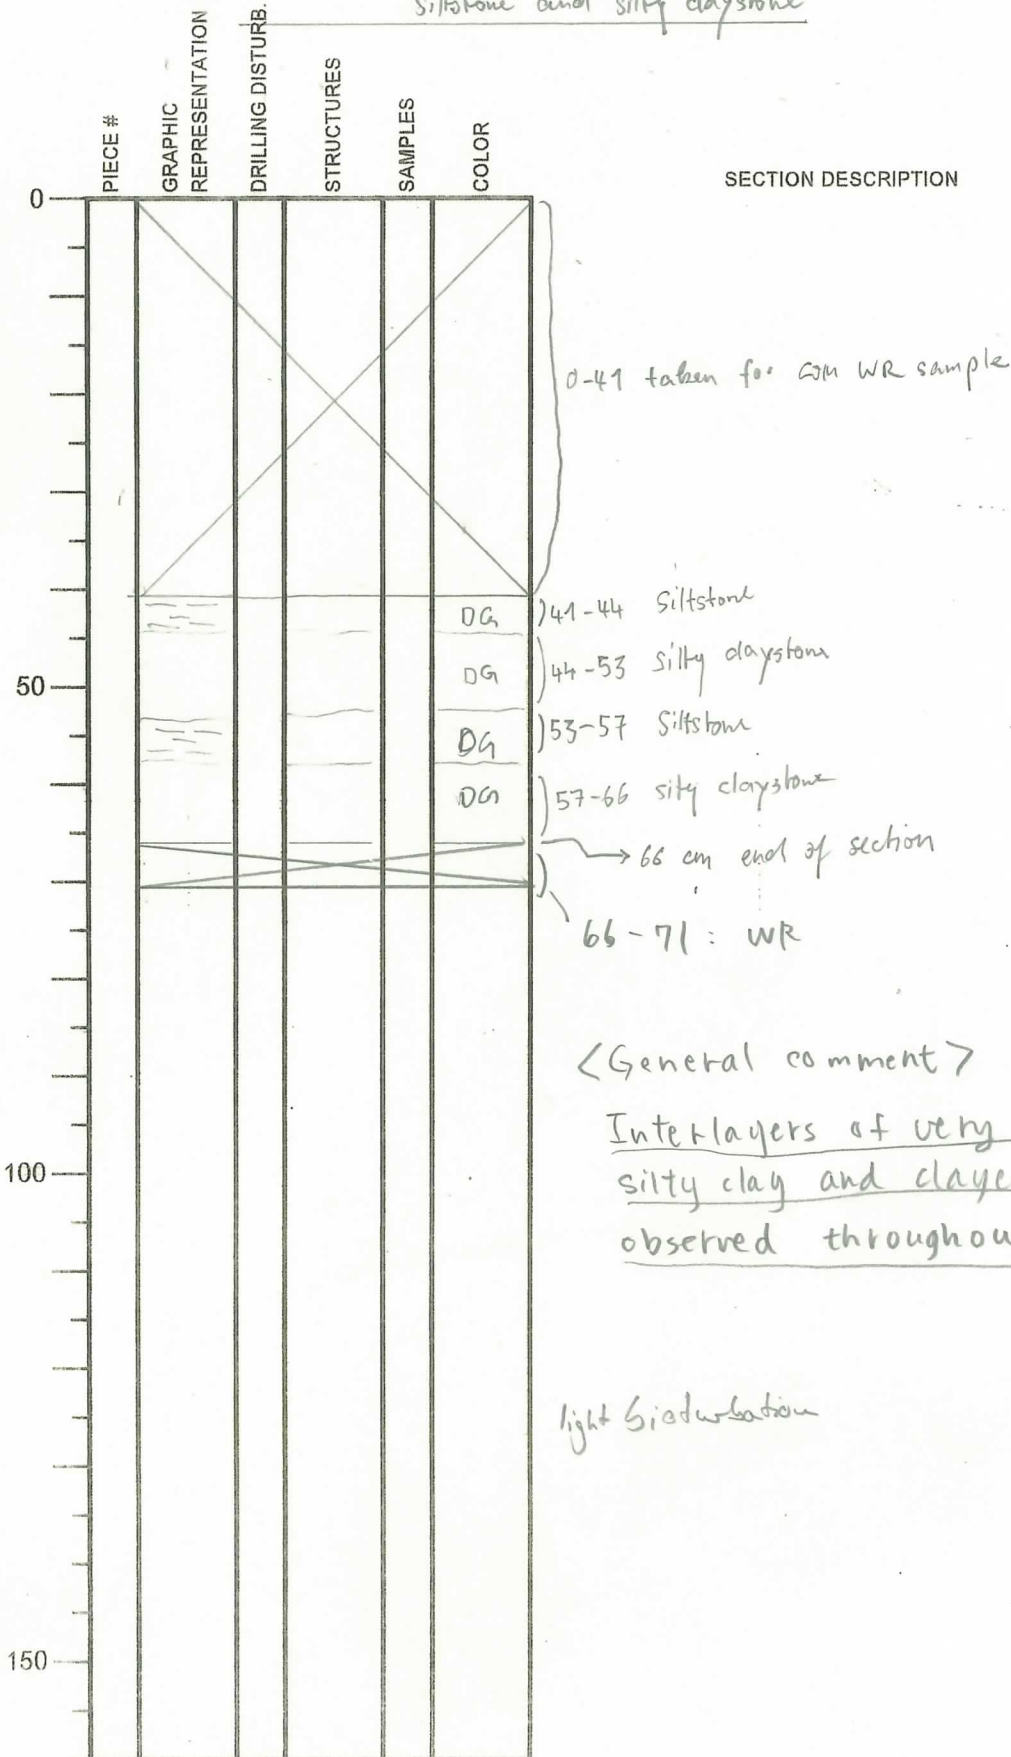 Siltstone and silty claystone
PIECE #
GRAPHIC
REPRESENTATION
DRILLING DISTURB.
STRUCTURES
SAMPLES
COLOR
SECTION DESCRIPTION
0
0-41 taken for com WR sample
DG 41-44 Siltstone
DG 44-53 Silty claystone
50
DG 53-57 Siltstone
DG 57-66 sity claystone
66 cm end of section
66-71: WR
<General comment>
Interlayers of very
silty clay and claye
100
observed throughou
light bioturbation
150